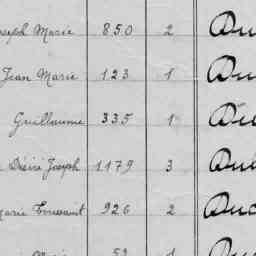 Joseph Marie 850 2 Du
Jean Marie 123 1 Du
Guillaume 335 1 Du
Désiré Joseph 1179 3 Du
Marie Toussaint 926 2 Duc